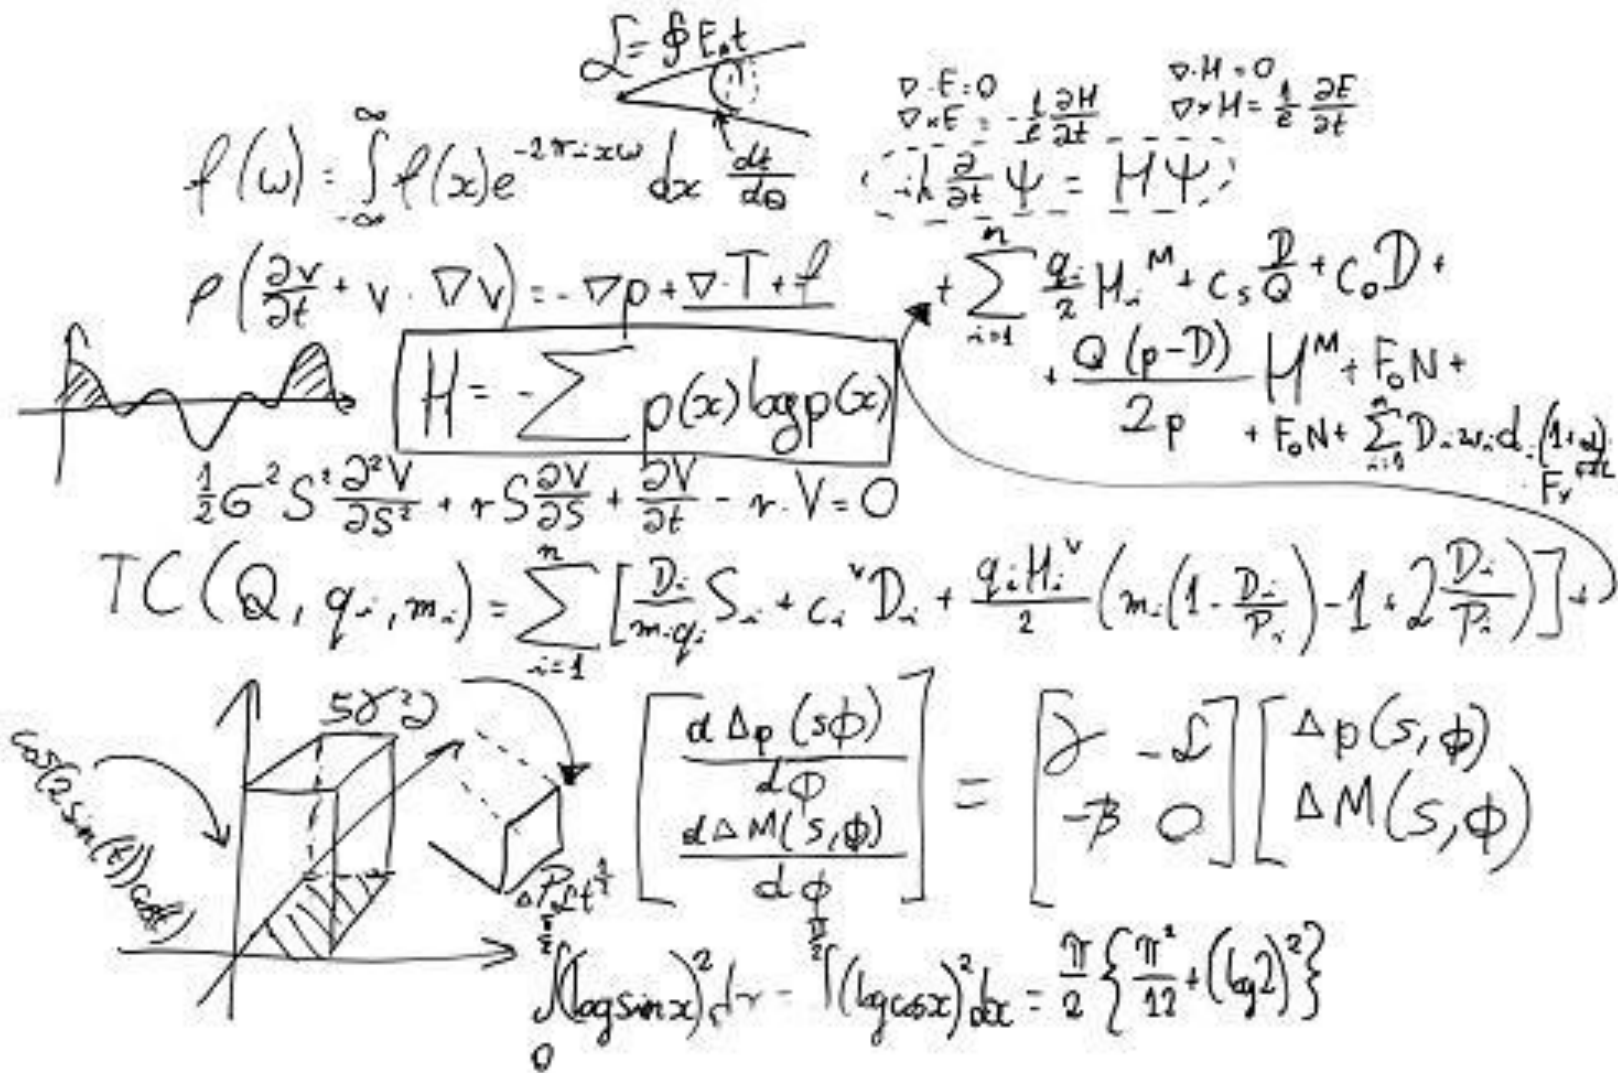 ℒ = ∮ E₀t
∇·E = 0
∇×E = -1/c ∂H/∂t
∇·H = 0
∇×H = 1/c ∂E/∂t
f(ω) = ∫_{-∞}^{∞} f(x)e^{-2πixω} dx
dt/dΘ
iħ ∂/∂t Ψ = HΨ
ρ(∂v/∂t + v·∇v) = -∇p + ∇·T + f
+ ∑_{i=1}^{n} q_i/2 H_i^M + c_s D/Q + C_0 D +
+ Q(p-D)/2p H^M + F_0N +
+ F_0N + ∑_{i=1}^{n} D_i w_i d_i
H = -∑ p(x) log p(x)
1/2 σ² S² ∂²V/∂S² + rS ∂V/∂S + ∂V/∂t - r·V = 0
TC(Q, q_i, m_i) = ∑_{i=1}^{n} [D_i/m_i q_i S_i + c_i^v D_i + q_i H_i^v/2 (m_i(1 - D_i/P_i) - 1 + 2 D_i/P_i)] +
cos(2sin(t))
[dΔp(sϕ)/dϕ
dΔM(s,ϕ)/dϕ] = [γ -ℒ
-β 0] [Δp(s,ϕ)
ΔM(s,ϕ)
∫_0^{π/2} (log sin x)² dx = ∫^{π/2} (log cos x)² dx = π/2 {π²/12 + (log 2)²}